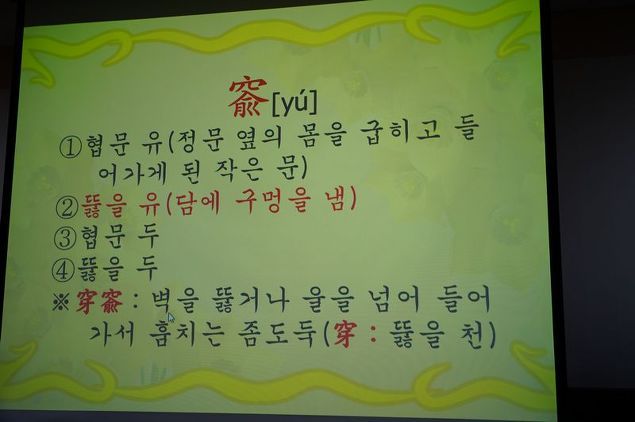 窬[yú]
①협문 유(정문 옆의 몸을 굽히고 들
어가게 된 작은 문)
②뚫을 유(담에 구멍을 냄)
③협문 두
④뚫을 두
※穿窬 : 벽을 뚫거나 울을 넘어 들어
가서 훔치는 좀도둑(穿 : 뚫을 천)